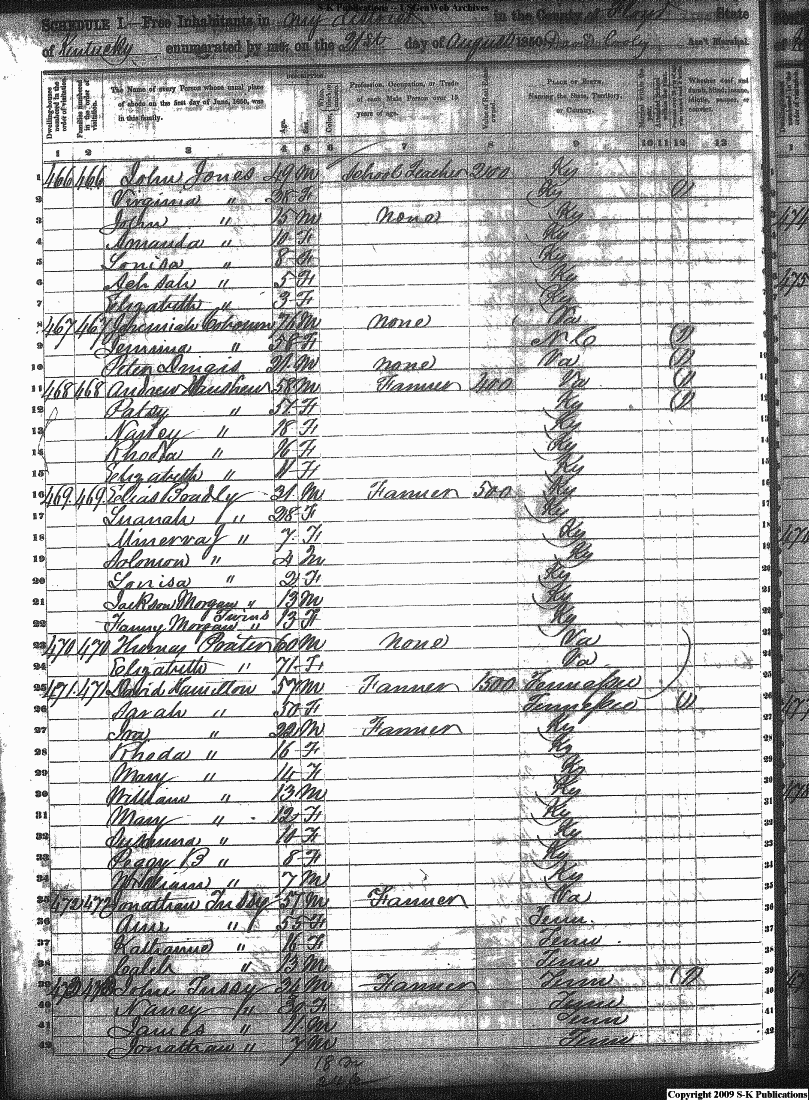 S-K Publications - USGenWeb Archives
SCHEDULE I.—Free Inhabitants in my district in the County of Floyd State
of Kentucky enumerated by me, on the 21st day of August 1850. David Cooley Ass't Marshal.
Dwelling-houses numbered in the order of visitation.
Families numbered in the order of visitation.
The Name of every Person whose usual place of abode on the first day of June, 1850, was in this family.
Description.
Age.
Sex.
Profession, Occupation, or Trade of each Male Person over 15 years of age.
Value of Real Estate owned.
Place of Birth, Naming the State, Territory, or Country.
Whether deaf and dumb, blind, insane, idiotic, pauper, or convict.
1 2 3 4 5 6 7 8 9 10 11 12 13
1 466 466 John Jones 49 M School Teacher 200 Ky
2 Virginia " 38 F Ky 1
3 John " 15 M none Ky
4 Amanda " 10 F Ky
5 Louisa " 8 F Ky
6 Achsah " 5 F Ky
7 Elizabeth " 3 F Ky
8 467 467 Jeremiah Coburn M none Va
9 Jemima " 58 F N.C 1
10 Peter M none Va 1
11 468 468 Andrew 58 M Farmer 400 Va 1
12 Patsy " 57 F Ky 1
13 Nancy " 18 F Ky
14 Rhoda " 16 F Ky
15 Elizabeth " 11 F Ky
16 469 469 Elias 31 M Farmer 500 Ky
17 Luanah " 28 F Ky
18 Minerva " 7 F Ky
19 Solomon " 4 M Ky
20 Louisa " 2 F Ky
21 Jackson Morgan " 13 M Ky
22 Fanny Morgan Twins " 13 F Ky
23 470 470 Thomas Prater 60 M none Va
24 Elizabeth " 71 F Va
25 471 471 David Hamilton 57 M Farmer 1500 Tennessee
26 Sarah " 50 F Tennessee 1
27 Ira " 22 M Farmer Ky
28 Rhoda " 16 F Ky
29 Mary " 14 F Ky
30 William " 13 M Ky
31 Mary " 12 F Ky
32 Susanna " 10 F Ky
33 Peggy B " 8 F Ky
34 William " 7 M Ky
35 472 472 Jonathan Tussy 57 M Farmer Va
36 Ann " 55 F Tenn.
37 Katharine " 16 F Tenn
38 Caleb " 13 M Tenn
39 473 473 John Tussy 34 M Farmer Tenn 1
40 Nancy " F Tenn
41 James " 11 M Tenn
42 Jonathan " 7 M Tenn
18 m
24 f
474
475
Copyright 2009 S-K Publications